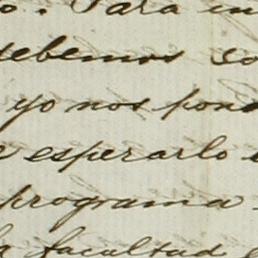 . Para
debemos
yo nos pon
esperarlo
programa
facultad